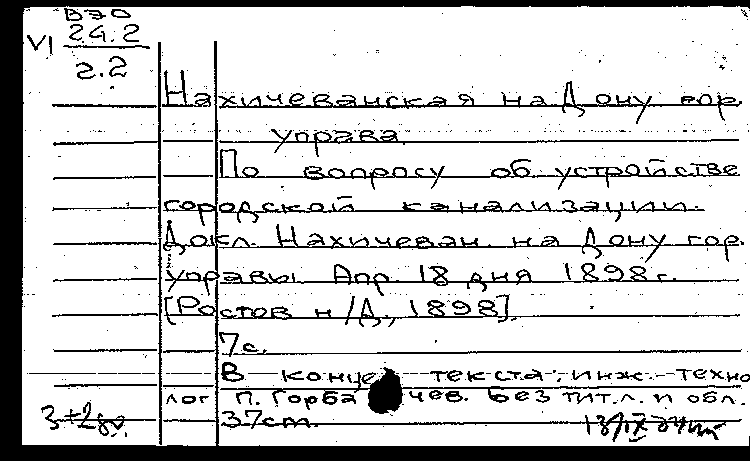 ВЭО
VI 24.2
2.2
Нахичеванская на Дону гор.
управа.
По вопросу об устройстве
городской канализации.
Докл. Нахичеван. на Дону гор.
управы. Апр. 18 дня 1898 г.
[Ростов н/Д., 1898].
7с.
В конце текста: инж.-техно
лог П. Горбачев. Без тит.л. и обл.
37cm.